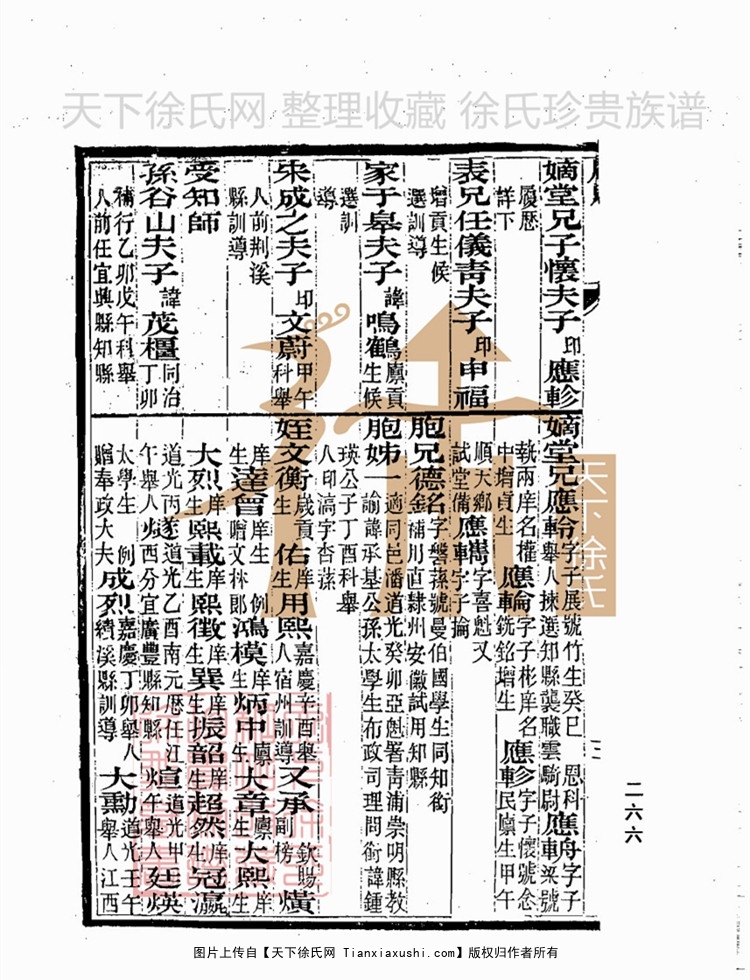 天下徐氏网 整理收藏 徐氏珍贵族谱
嫡堂兄子懷夫子印應軫
履歷
詳下
表兄任儀書夫子印申福
增貢生候
選訓導
家于皋夫子諱鳴鶴廩貢
生候
選訓
導
朱成之夫子印文蔚甲午
科舉
人前荆溪
縣訓導
受知師
孫谷山夫子諱茂櫃同治
丁卯
補行乙卯戊午科舉
人前任宜興縣知縣
嫡堂兄應軨字子展號竹生癸巳 恩科
舉人揀選知縣襲職雲騎尉
應舟字子
梁號
執兩庠名權
中增貢生
應輪字子彬庠名
銑銘增生
應軫字子懷號念
民廩生甲午
順天鄉
試堂備
應
字喜魁又
字子掄
胞兄德名字
號曼伯國學生同知銜
金補用直隸州安徽試用知縣
胞姊一適同邑潘道光癸卯亞魁署青浦崇明縣教
諭諱承基公孫太學生布政司理問銜諱鍾
瑛公子丁酉科舉
人印滈字杏蓀
姪文衡歲貢
生
佑庠
生
用熙嘉慶辛酉舉
人宿州訓導
又承 欽賜
副榜
燌
庠
生
達曾庠生 例
贈文林郎
鴻模庠
生
炳中廩
生
大章廩
生
大熙庠
生
大烈庠
生
熙載庠
生
熙徵庠
生
巽庠
生
振韶庠
生
超然庠
生
冠瀛
道光丙
午舉人
道光乙酉南元歷任江
西分宜廣豐縣知縣
煊道光甲
午舉人
廷煐
太學生 例
贈奉政大夫
成烈嘉慶丁卯舉人
績溪縣訓導
大勳道光壬午
舉人江西
二六六
天下徐氏
图片上传自【天下徐氏网 Tianxiaxushi.com】版权归作者所有